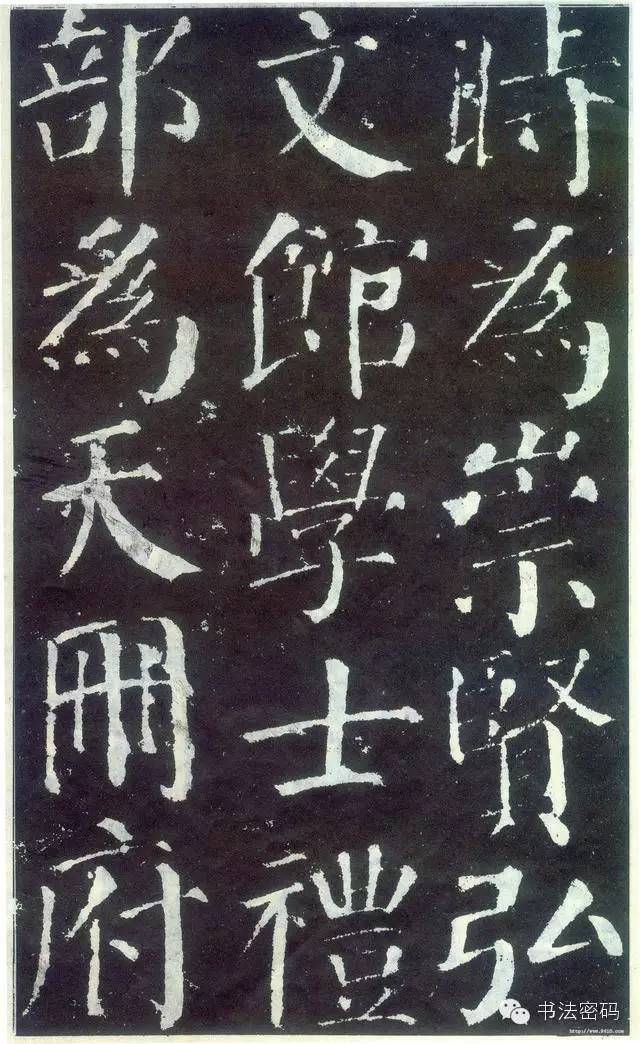 時為崇賢弘
文館學士禮
部為天冊府
书法密码
http://www.9610.com